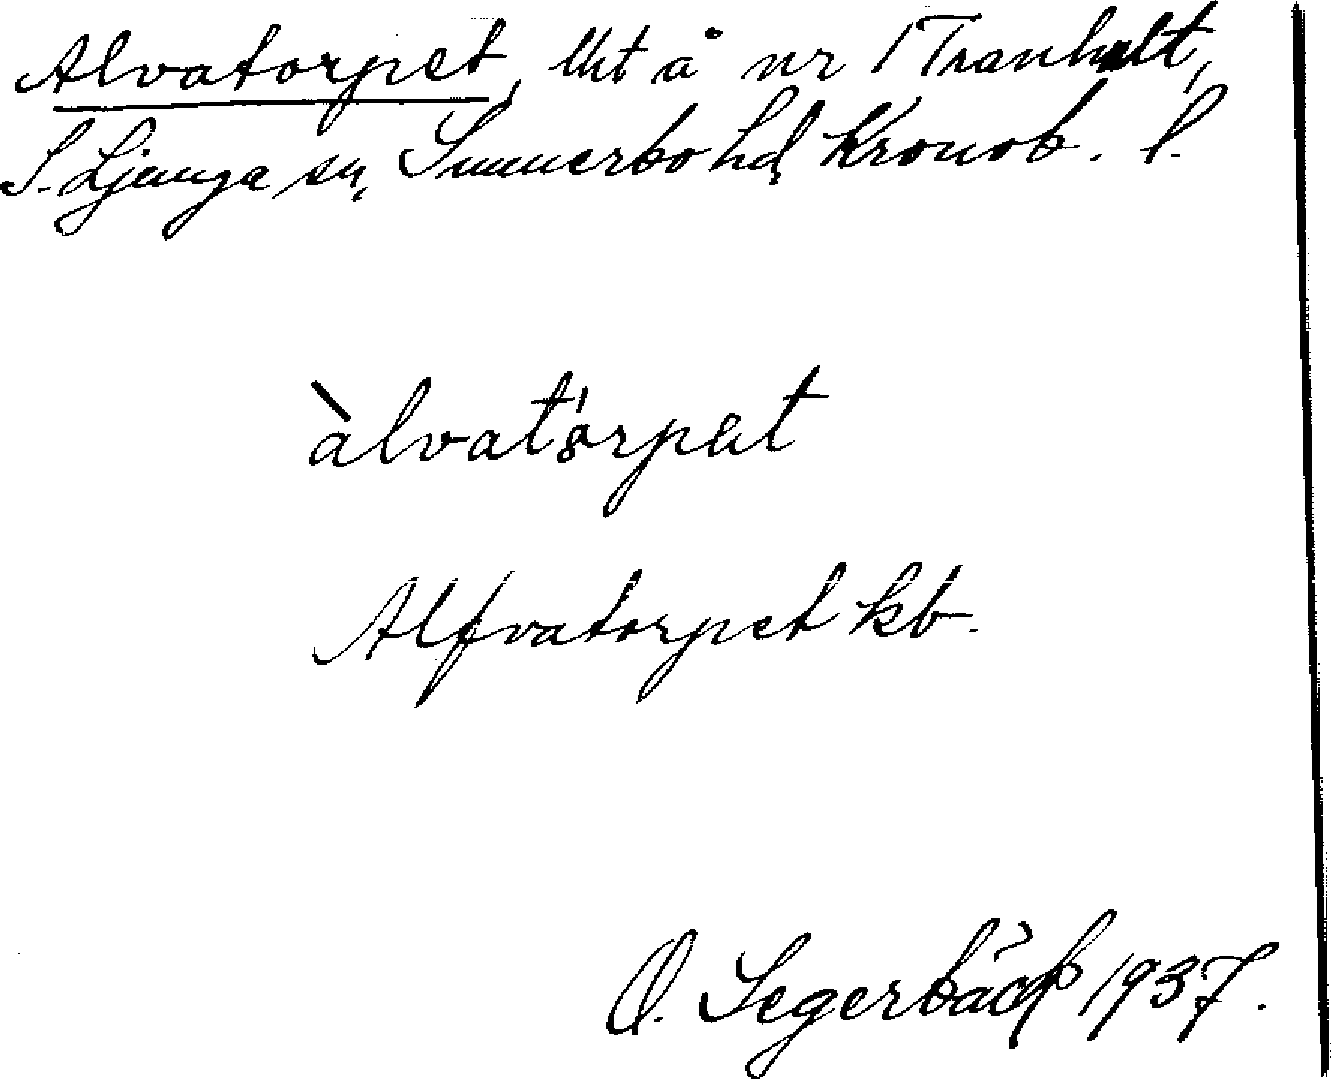 Alvatorpet, lht å nr 1 Tranhult,
S. Ljunga sn, Sunnerbo hd, Kronob. l.
àlvatórpat
Alfvatorpet kb.
O. Segerbäck 1937.